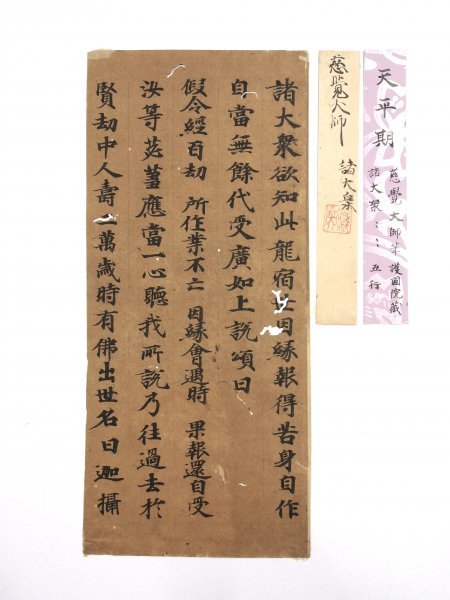 天平期
慈覺大師筆護國院蔵
諸大衆〻〻 五行
慈覺大師
諸大衆
諸大衆欲知此龍宿世因縁報得苦身自作
自當無餘代受廣如上說頌曰
假令經百劫 所作業不亡 因縁會遇時 果報還自受
汝等苾蒭應當一心聽我所說乃往過去於
賢劫中人壽二萬歲時有佛出世名曰迦攝